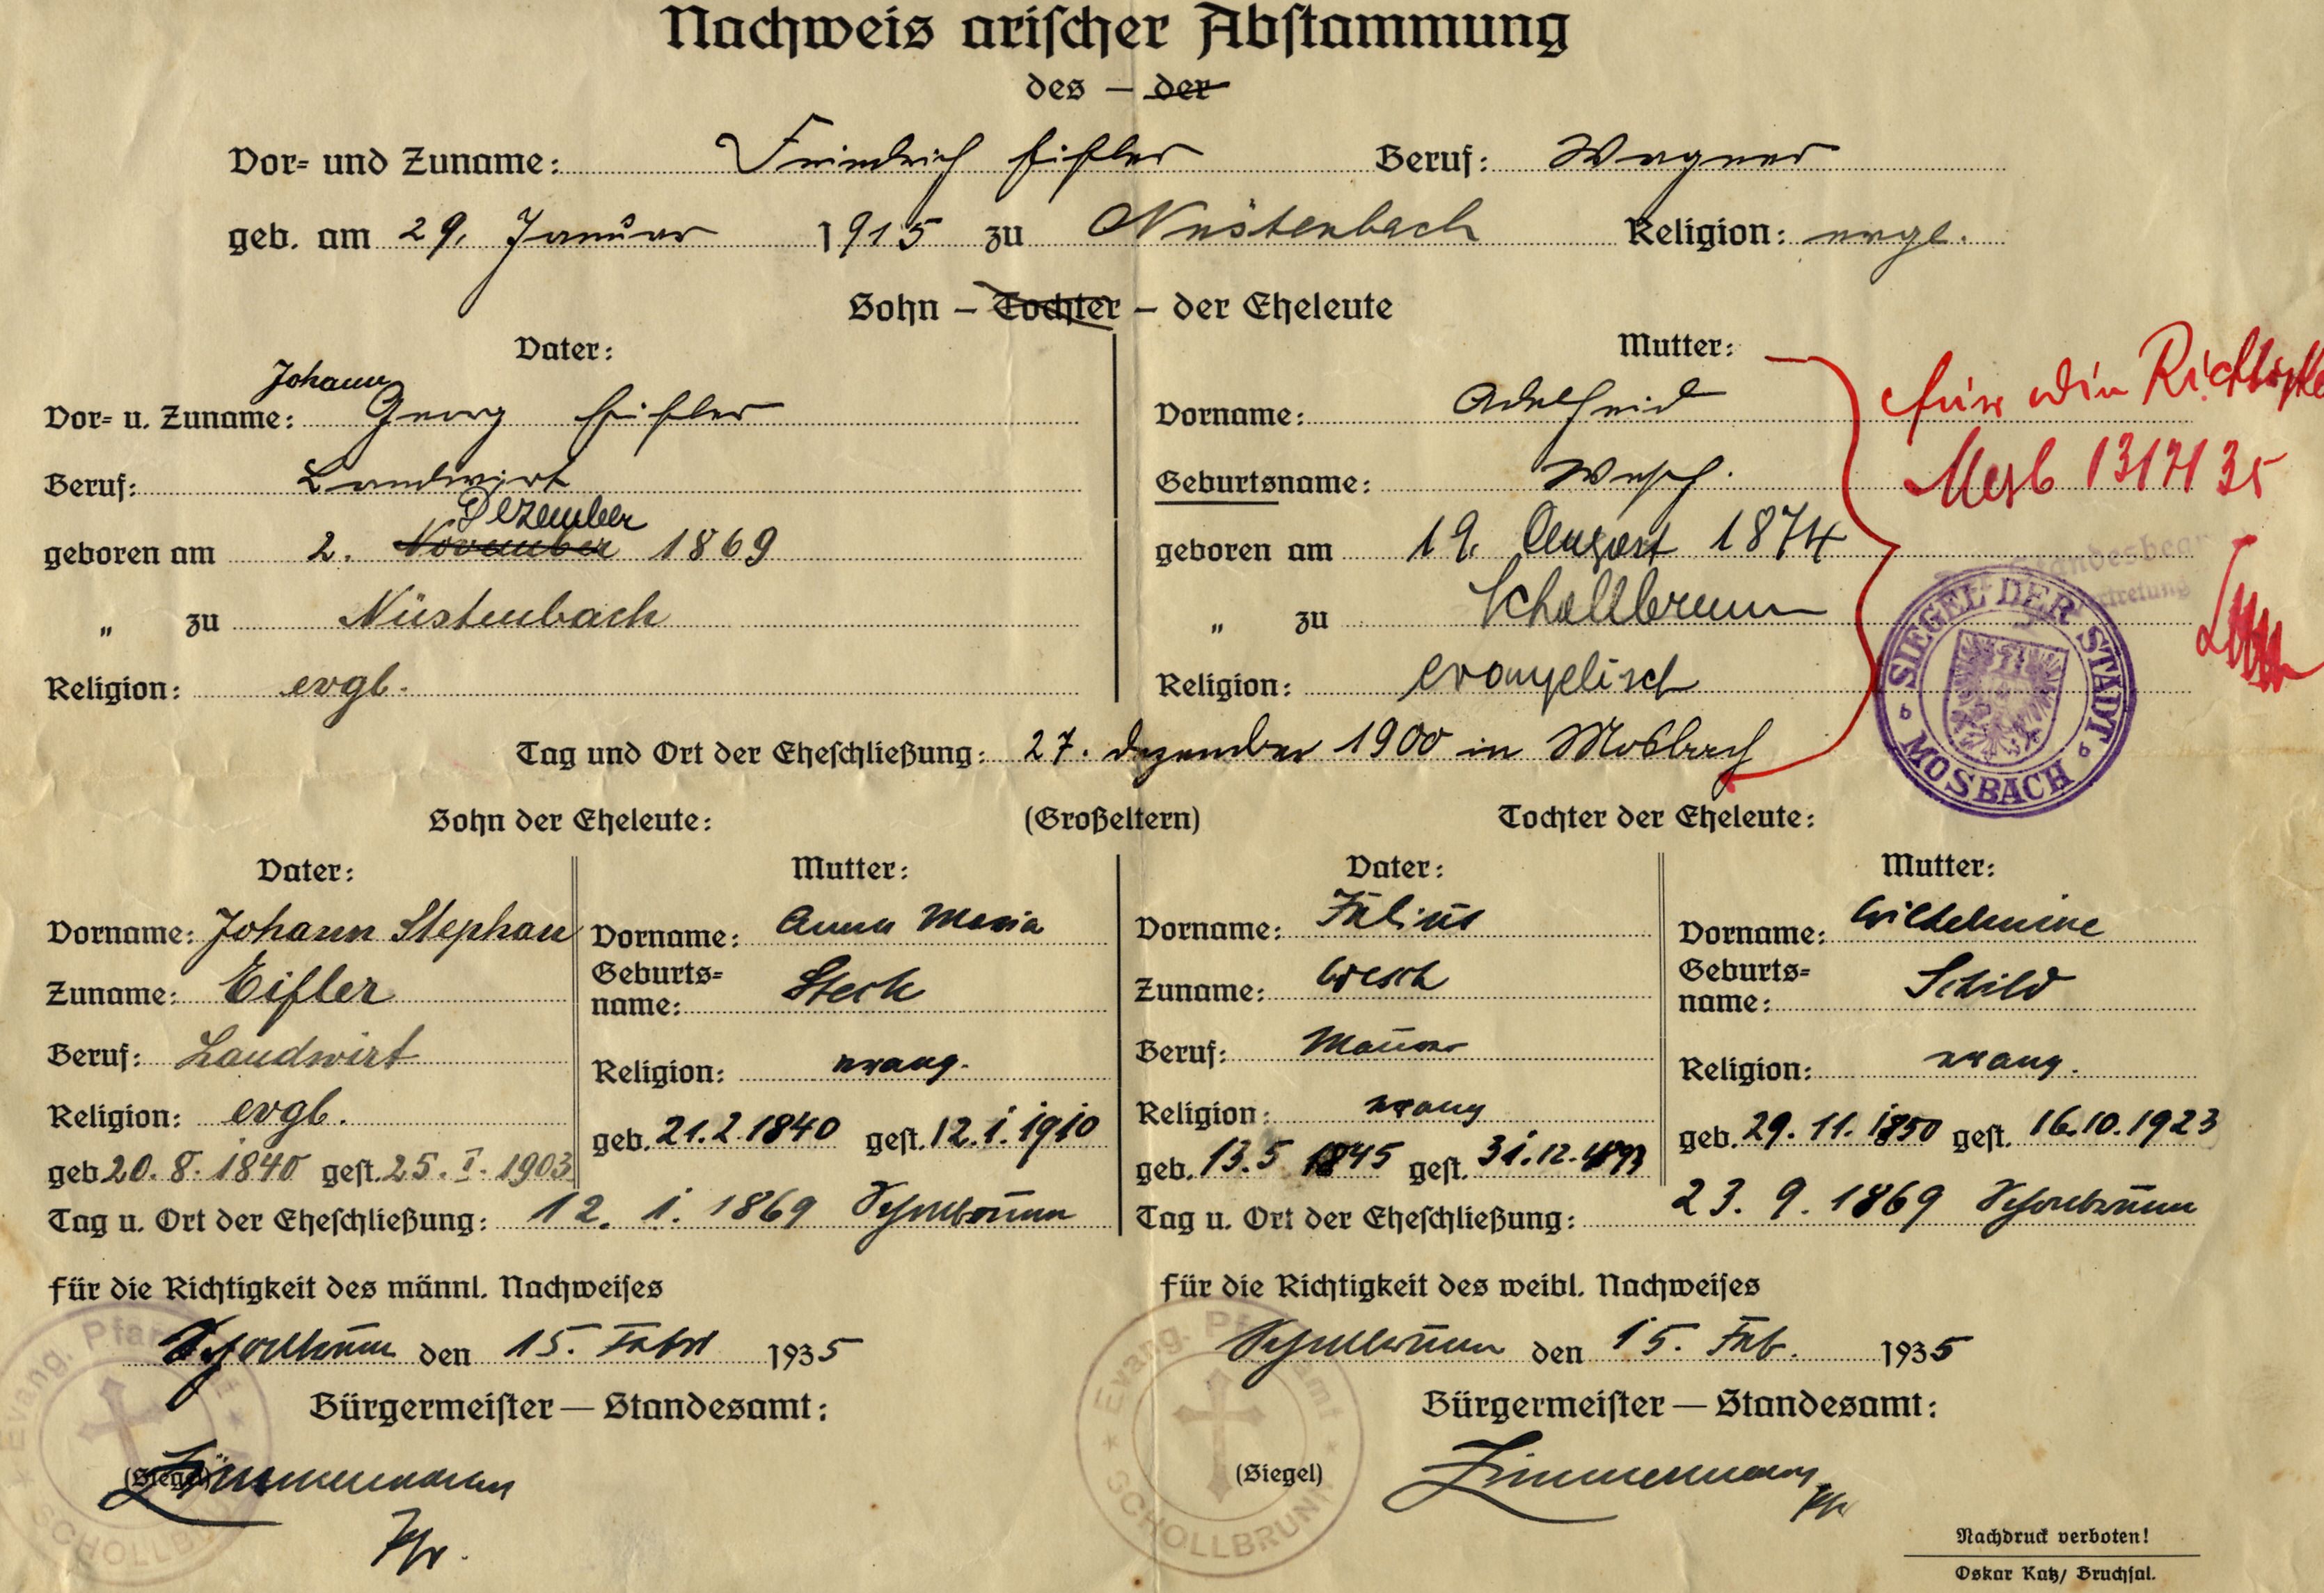 Nachweis arischer Abstammung
des – der
Vor- und Zuname: Friedrich Eifler Beruf: Wagner
geb. am 29. Januar 1915 zu Nüstenbach Religion: evgl.
Sohn – Tochter – der Eheleute
Vater:
Johann
Vor- u. Zuname: Georg Eifler
Beruf: Landwirt
Dezember
geboren am 2. November 1869
„ zu Nüstenbach
Religion: evgl.
Mutter:
Vorname: Adelheid
Geburtsname: Wesch.
geboren am 19. August 1874
„ zu Schollbrunn
Religion: evangelisch
für die
Mosb 13/7/35
Standesbeamte
SIEGEL DER STADT MOSBACH
Tag und Ort der Eheschließung: 27. Dezember 1900 in Mosbach
Sohn der Eheleute: (Großeltern) Tochter der Eheleute:
Vater:
Vorname: Johann Stephan
Zuname: Eifler
Beruf: Landwirt
Religion: evgl.
geb. 20. 8. 1840 gest. 25. I. 1903
Mutter:
Vorname: Anna Maria
Geburts-
name: Steck
Religion: evang.
geb. 21. 2. 1840 gest. 12. 1. 1910
Tag u. Ort der Eheschließung: 12. 1. 1869 Schollbrunn
Vater:
Vorname: Julius
Zuname: Wesch
Beruf: Maurer
Religion: evang
geb. 13. 5 1845 gest. 31. 12. 1893
Mutter:
Vorname: Wilhelmine
Geburts-
name: Schild
Religion: evang.
geb. 29. 11. 1850 gest. 16. 10. 1923
Tag u. Ort der Eheschließung: 23. 9. 1869 Schollbrunn
Für die Richtigkeit des männl. Nachweises
Schollbrunn den 15. Febr 1935
Bürgermeister — Standesamt:
(Siegel) Zimmermann
Pfr.
Evang. Pfarramt SCHOLLBRUNN
Für die Richtigkeit des weibl. Nachweises
Schollbrunn den 15. Feb. 1935
Bürgermeister — Standesamt:
(Siegel) Zimmermann
Pfr
Evang. Pfarramt SCHOLLBRUNN
Nachdruck verboten!
Oskar Katz/ Bruchsal.